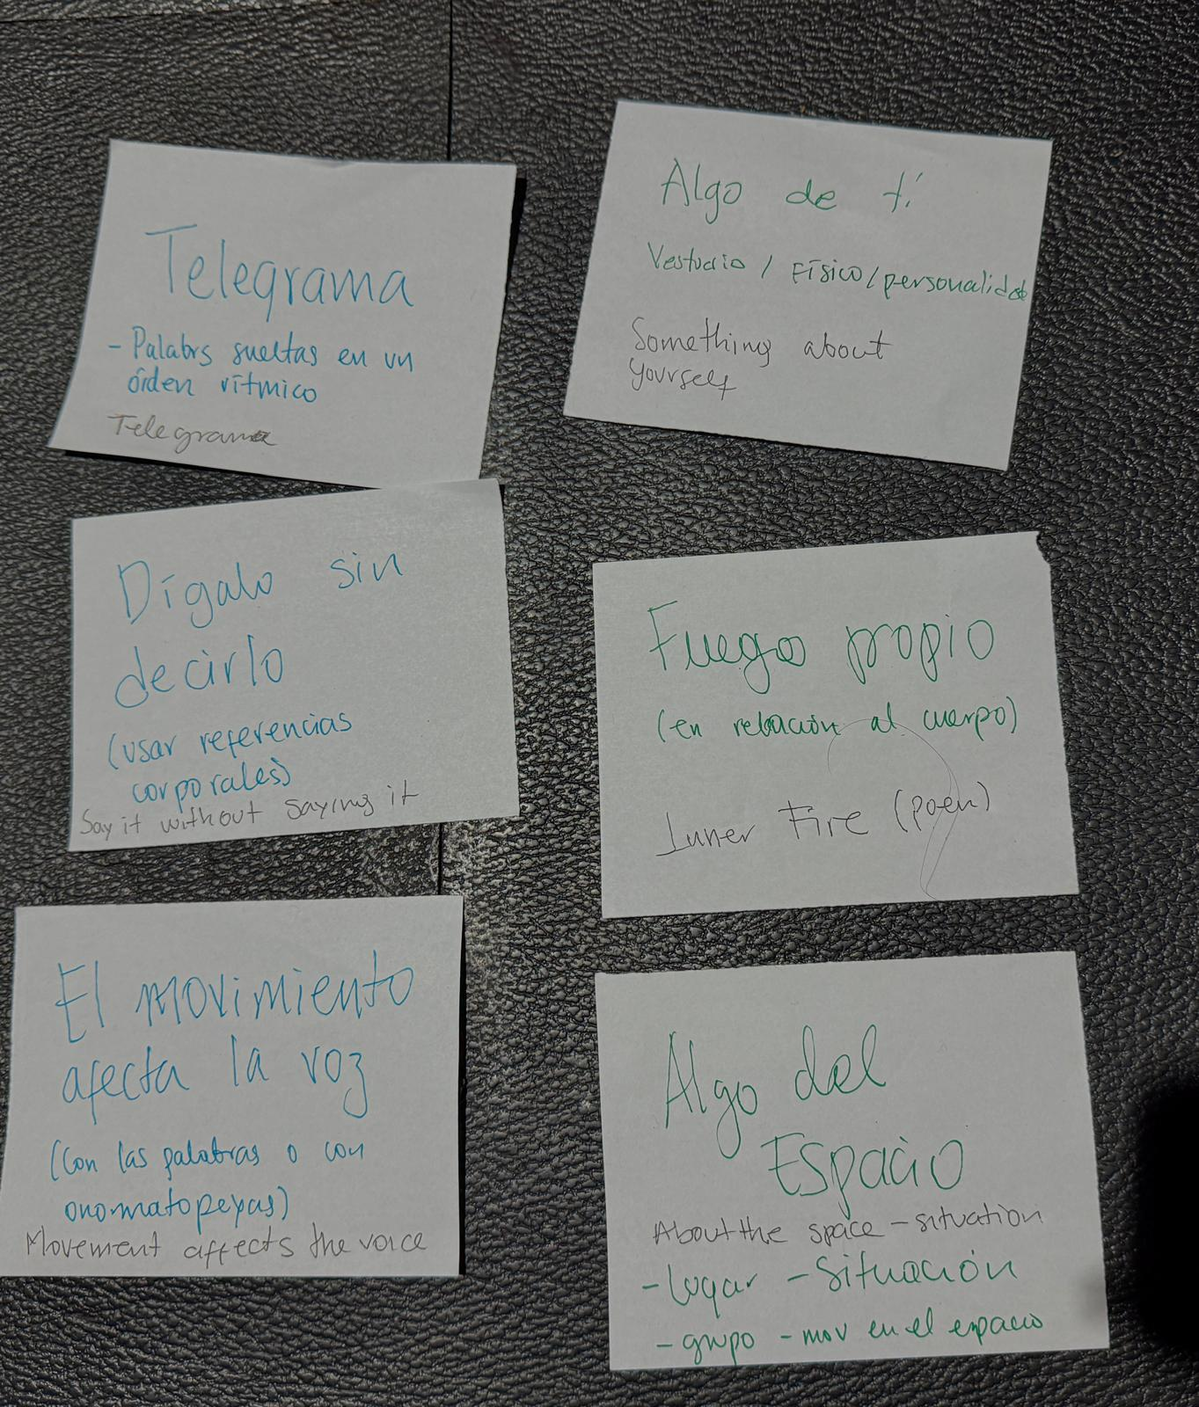 Telegrama
- Palabrs sueltas en un
órden rítmico
Telegrama
Algo de tí
Vestuario / Físico / personalidad
Something about
yourself
Dígalo sin
decirlo
(usar referencias
corporales)
Say it without saying it
Fuego propio
(en relación al cuerpo)
Inner Fire (poen)
El movimiento
afecta la voz
(Con las palabras o con
onomatopeyas)
Movement affects the voice
Algo del
Espacio
About the space - situation
- lugar - Situación
- grupo - mov en el espacio